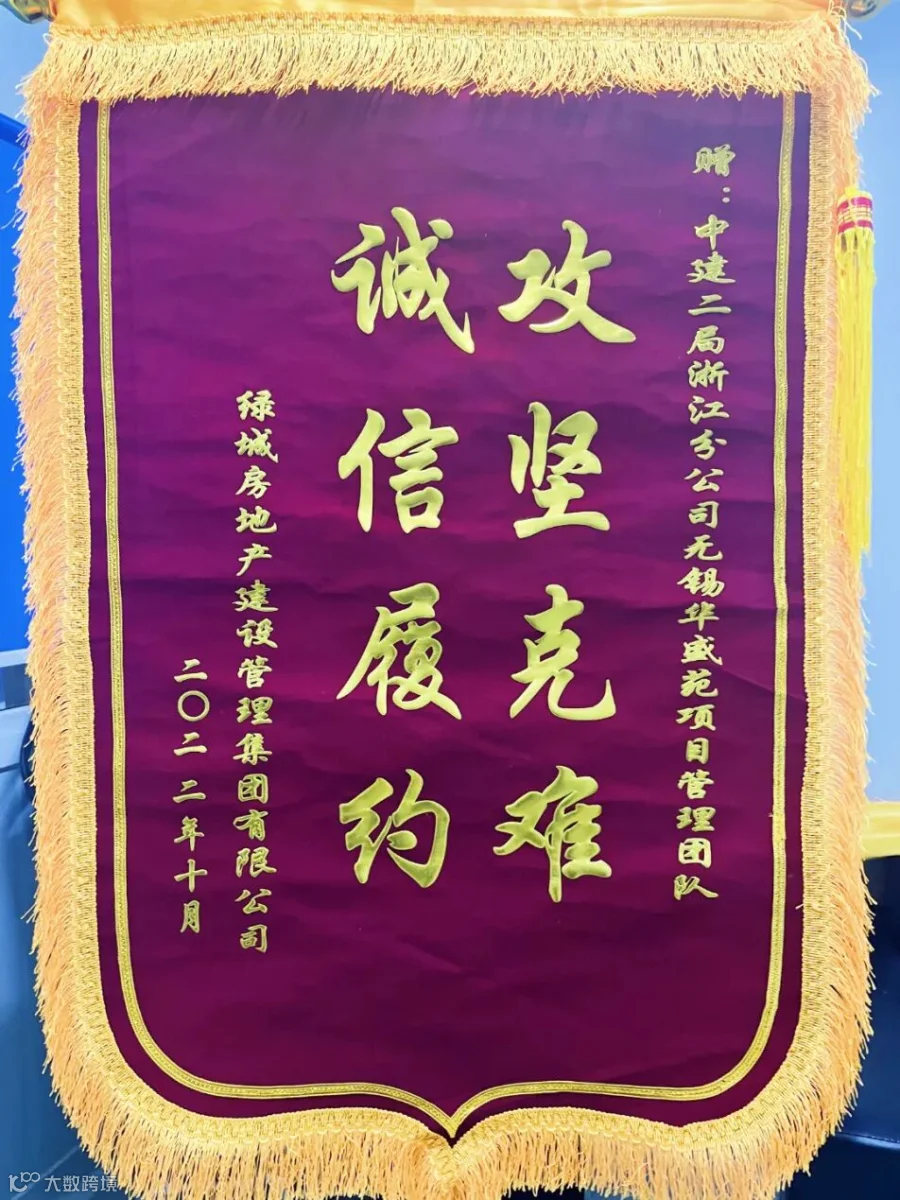 赠：中建二局浙江分公司无锡华盛苑项目管理团队
攻坚克难
诚信履约
绿城房地产建设管理集团有限公司
二〇二二年十月
大数跨境